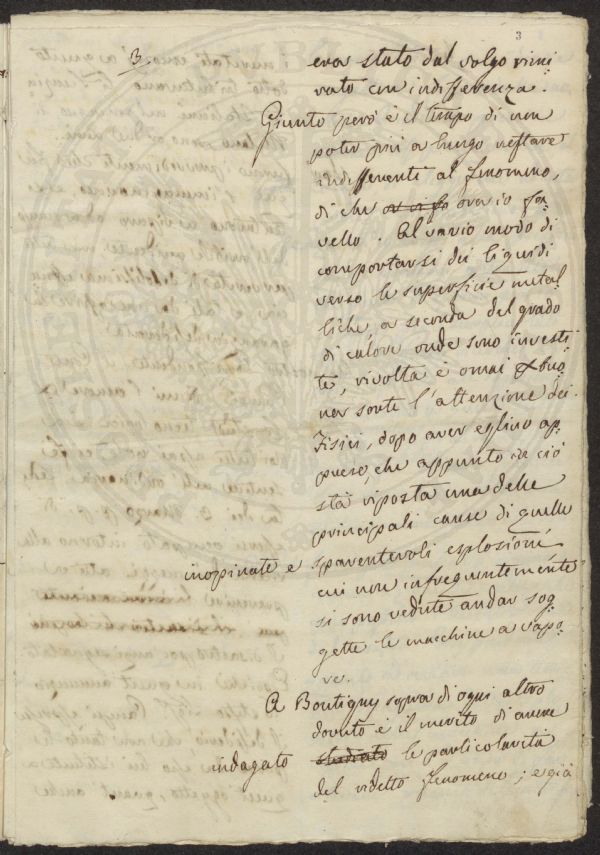 3
3.
era stato dal volgo rimi
rato con indifferenza.
Giunto però è il tempo di non
poter più a lungo restare
indifferenti al fenomeno,
di che or io fa-
vello. Al vario modo di
comportarsi dei liquidi
verso le superficie metal-
liche, a seconda del grado
di calore onde sono investi
te, rivolta è omai & buo-
na sorte l'attenzione dei
Fisici, dopo aver eglino ap-
preso, che appunto in ciò
stà riposta una delle
principali cause di quelle
inopinate e spaventevoli esplosioni
cui non infrequentemente
si sono vedute andar sog-
gette le macchine a vapo-
re.
A Boutigny sopra di ogni altro
dovuto è il merito di avere
indagato studiato le particolarità
del ridetto fenomeno; e già